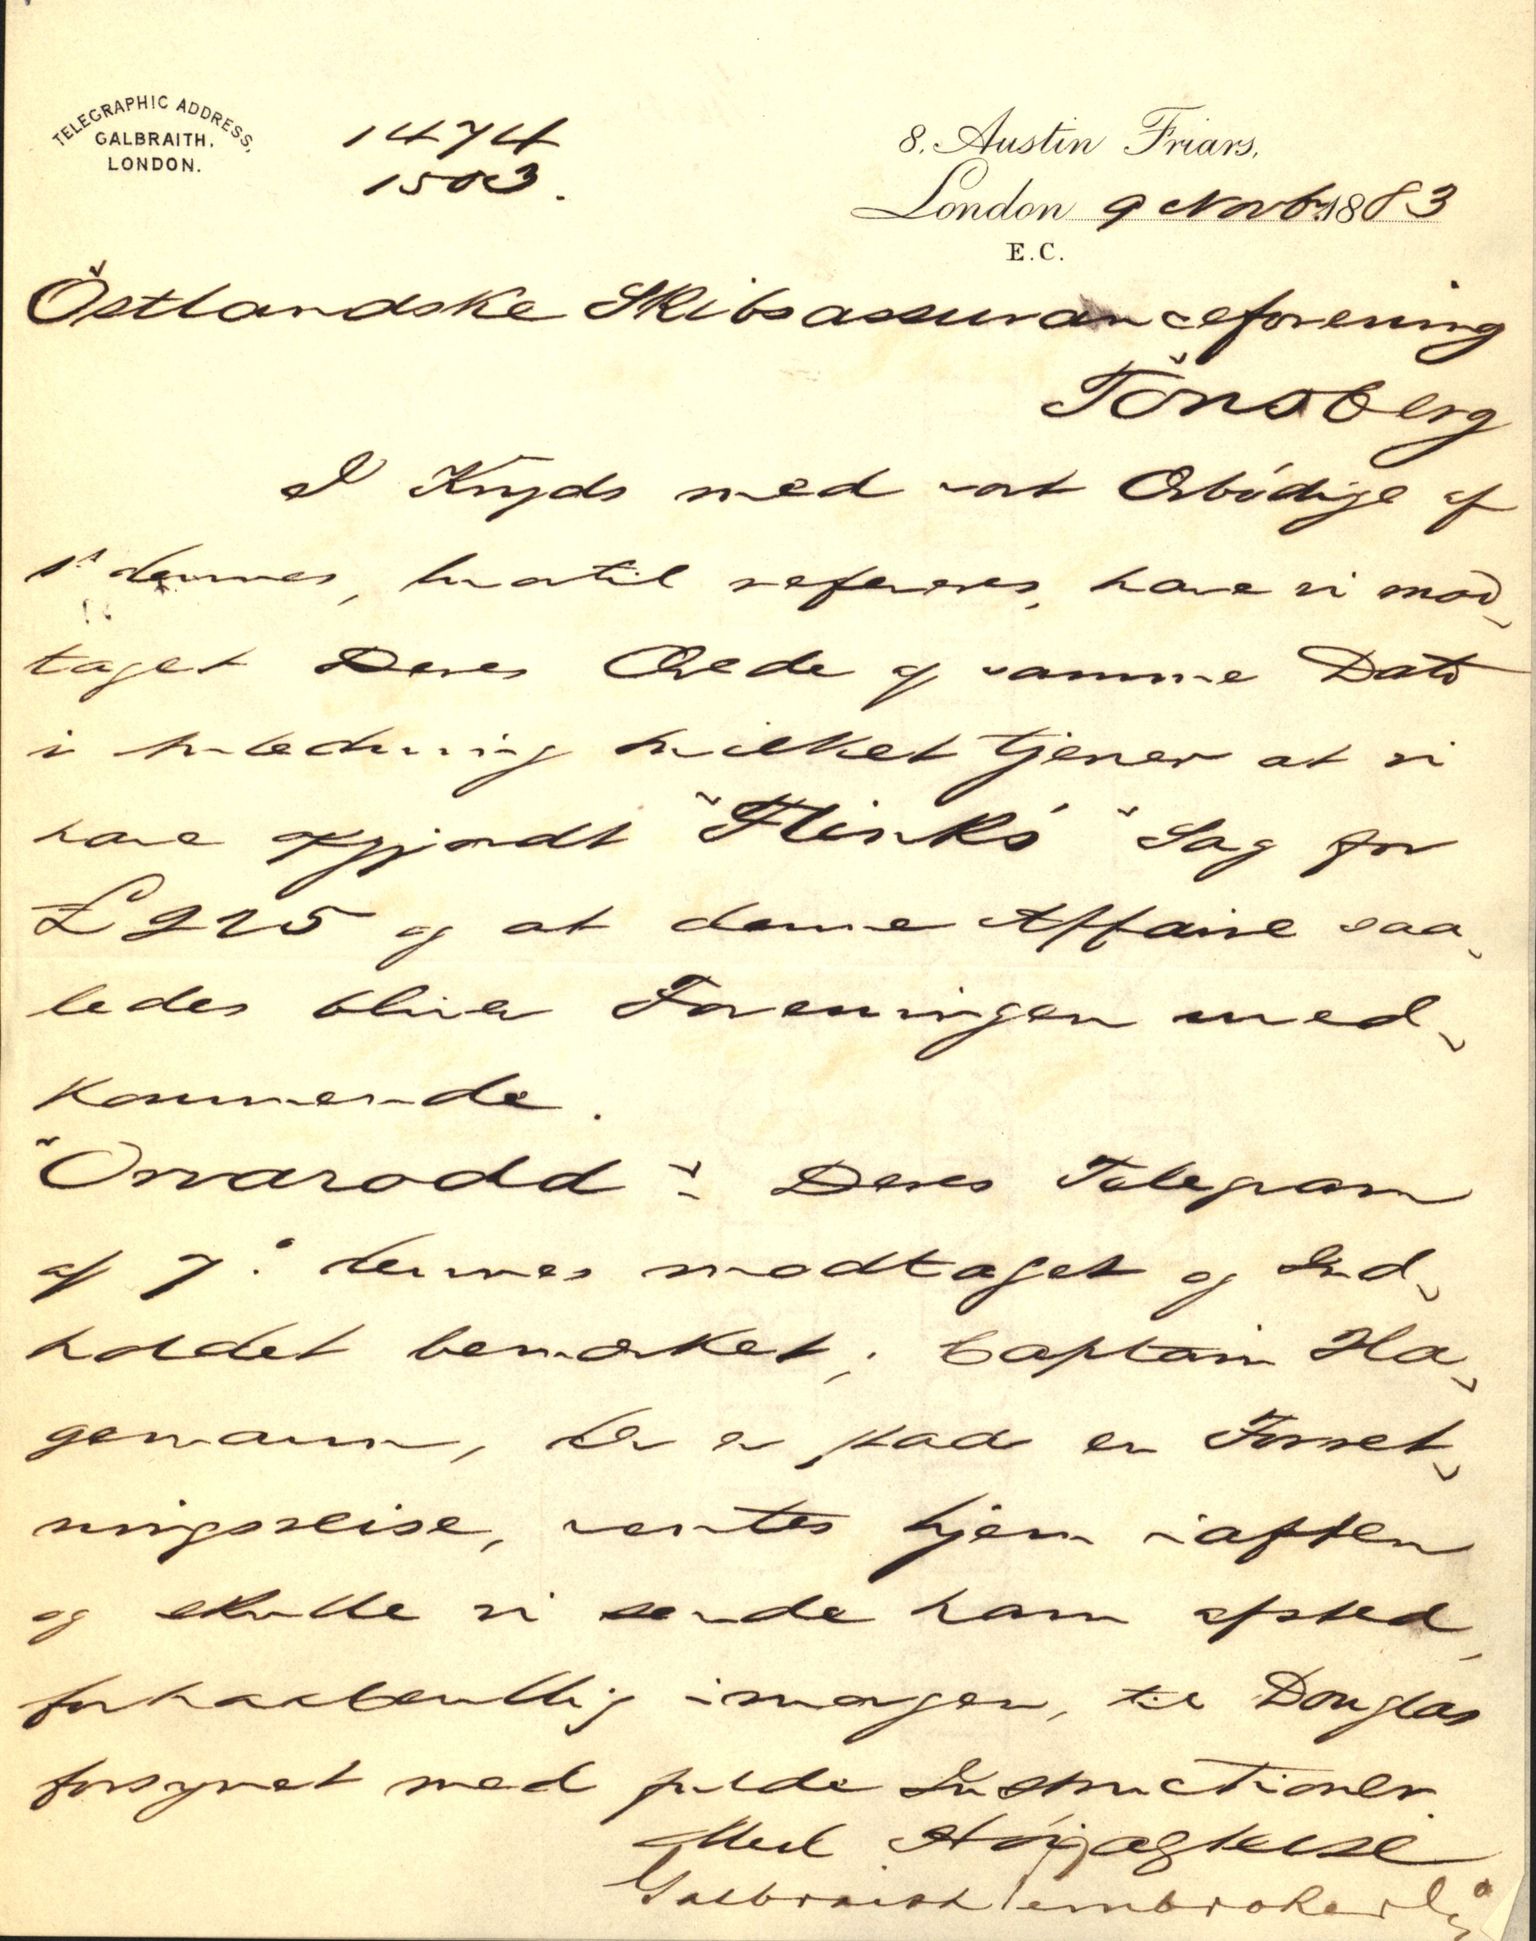 TELEGRAPHIC ADDRESS,
GALBRAITH.
LONDON.
1474
1503.
8. Austin Friars,
London 9 Novbr 1883
E.C.
Östlandske Skibsassuranceforening
Tönsberg
I Kryds med vort Ærbödige af
1st dennes, hvortil refereres, have vi mod¬
taget Deres Ærede af samme Dato
i Anledning hvilket tjener at vi
have opgjordt "Flink's" Sag for
£225 og at denne Affaire saa¬
ledes bliver Foreningen ved¬
kommende.
"Orvarodd": Deres Telegram
af 7: dennes modtaget og Ind¬
holdet bemærket; Captain Ha¬
gemann, der er paa en Forret¬
ningsreise, ventes hjem iaften
og skulle vi sende ham afsted,
forhaabentlig imorgen, til Douglas
forsynet med fulde Instructioner.
Med Höiagtelse
Galbraith Pembroke & Co